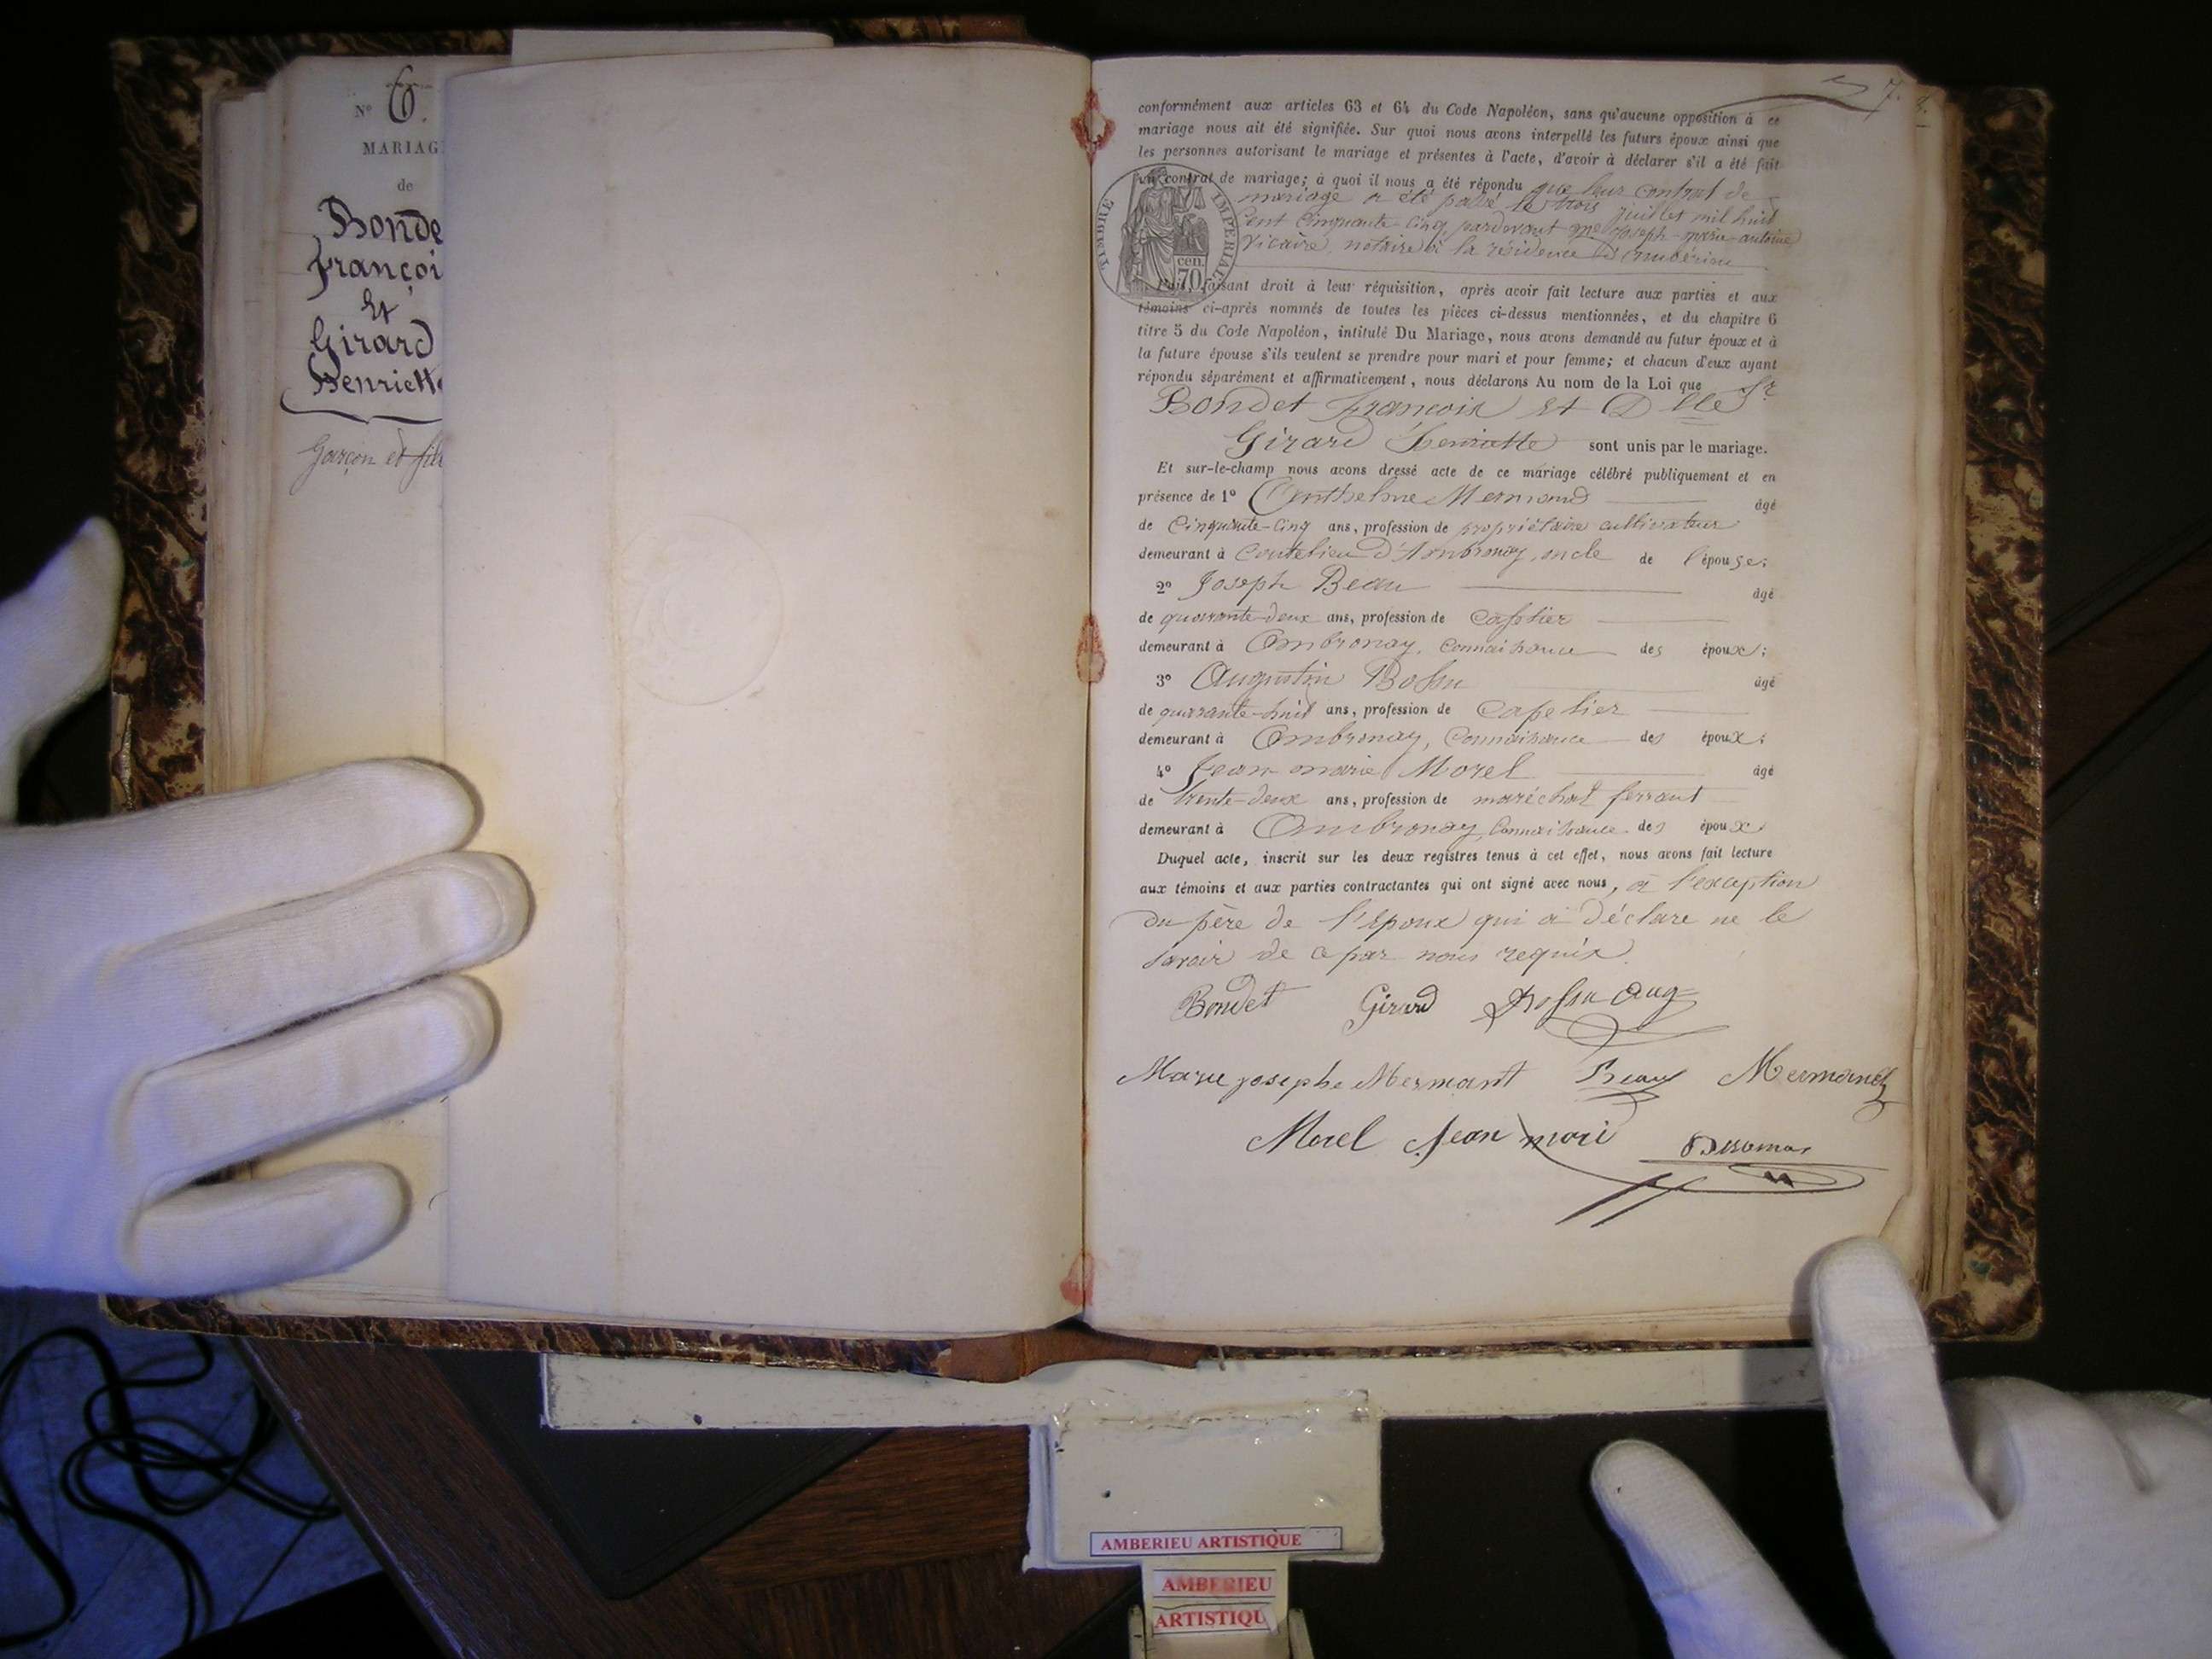 Nº 6.
MARIAG
de
Bonde
françoi
Et
Girard
Henriette
Garçon et fil
7.
conformément aux articles 63 et 64 du Code Napoléon, sans qu'aucune opposition à ce
mariage nous ait été signifiée. Sur quoi nous avons interpellé les futurs époux ainsi que
les personnes autorisant le mariage et présentes à l'acte, d'avoir à déclarer s'il a été fait
un contrat de mariage; à quoi il nous a été répondu que leur contrat de
mariage a été passé le trois juillet mil huit
Cent Cinquante-Cinq, pardevant me Joseph-marie-antoine
Vicaire, notaire à la résidence d'ambérieu
TIMBRE IMPERIAL
cen.
70
Puis, faisant droit à leur réquisition, après avoir fait lecture aux parties et aux
témoins ci-après nommés de toutes les pièces ci-dessus mentionnées, et du chapitre 6
titre 5 du Code Napoléon, intitulé Du Mariage, nous avons demandé au futur époux et à
la future épouse s'ils veulent se prendre pour mari et pour femme; et chacun d'eux ayant
répondu séparément et affirmativement, nous déclarons Au nom de la Loi que Sr
Bondet françois Et Dlle
Girard henriette sont unis par le mariage.
Et sur-le-champ nous avons dressé acte de ce mariage célébré publiquement et en
présence de 1º Anthelme Mermand âgé
de Cinquante-Cinq ans, profession de propriétaire cultivateur
demeurant à Coutelieu d'Ambronay, oncle de l'épouse;
2º Joseph Beau âgé
de quarante-deux ans, profession de Cafetier
demeurant à Ambronay, Connaissance des époux;
3º Augustin Bossu âgé
de quarante-huit ans, profession de Cafetier
demeurant à Ambronay, Connaissance des époux;
4º Jean-marie Morel âgé
de trente-deux ans, profession de maréchal ferrant
demeurant à Ambronay, Connaissance des époux
Duquel acte, inscrit sur les deux registres tenus à cet effet, nous avons fait lecture
aux témoins et aux parties contractantes qui ont signé avec nous, à l'exception
du père de l'époux qui a déclaré ne le
savoir de ce par nous requis.
Bondet Girard Bossu Aug
Marie josephe Mermant Beau Mermand
Morel Jean mari
AMBERIEU ARTISTIQUE
AMBERIEU
ARTISTIQU